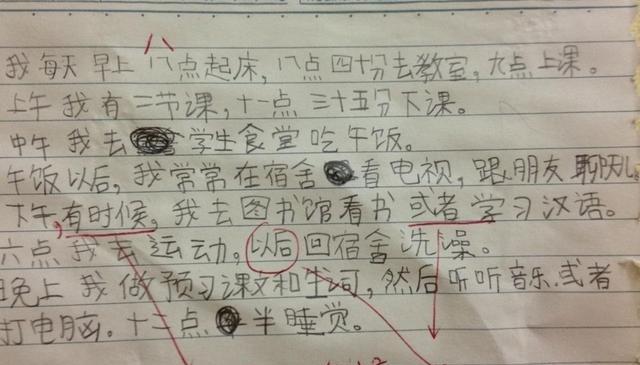 八
我每天早上八点起床,八点四十分去教室,九点上课。
上午我有二节课,十一点三十五分下课。
中午我去学生食堂吃午饭。
午饭以后,我常常在宿舍看电视,跟朋友聊天儿
下午,有时候,我去图书馆看书或者学习汉语。
六点我去运动。以后回宿舍洗澡。
晚上我做预习课文和生词,然后听听音乐.或者
打电脑。十二点半睡觉。